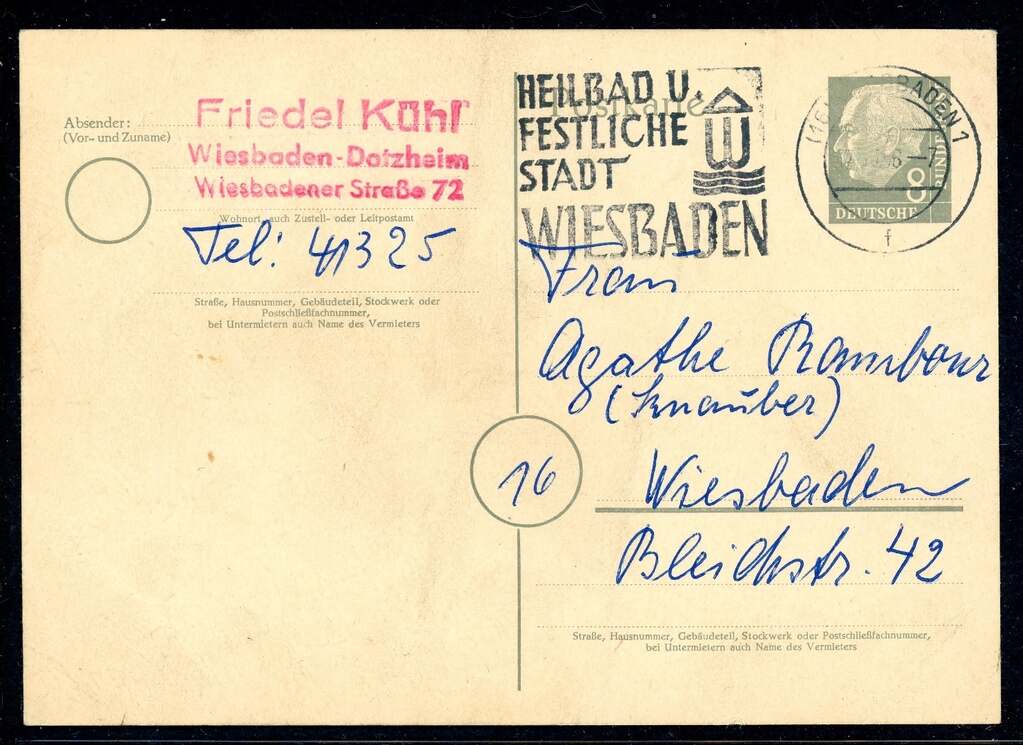 Absender:
(Vor- und Zuname)
Friedel Kühl
Wiesbaden-Dotzheim
Wiesbadener Straße 72
Wohnort, auch Zustell- oder Leitpostamt
Tel: 41325
Straße, Hausnummer, Gebäudeteil, Stockwerk oder
Postschließfachnummer,
bei Untermietern auch Name des Vermieters
Postkarte
HEILBAD U.
FESTLICHE
STADT
WIESBADEN
W
WIESBADEN 1
-7
f
8
DEUTSCHE
BUNDES
Frau
Agathe Rambour
(Knauber)
16
Wiesbaden
Bleichstr. 42
Straße, Hausnummer, Gebäudeteil, Stockwerk oder Postschließfachnummer,
bei Untermietern auch Name des Vermieters